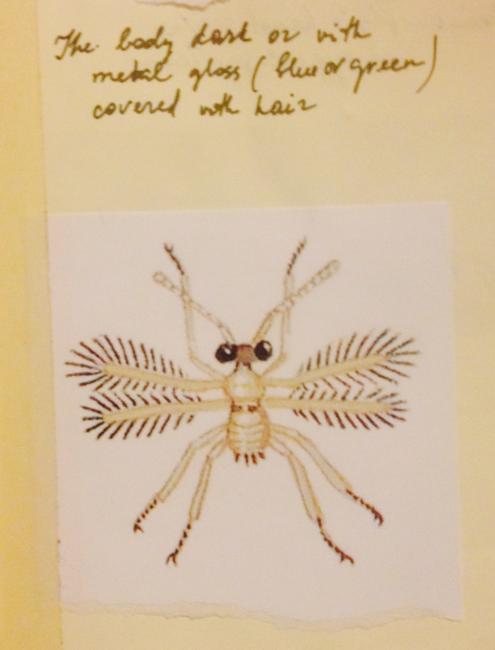 The body dark or with
metal gloss (blue or green)
covered with hair